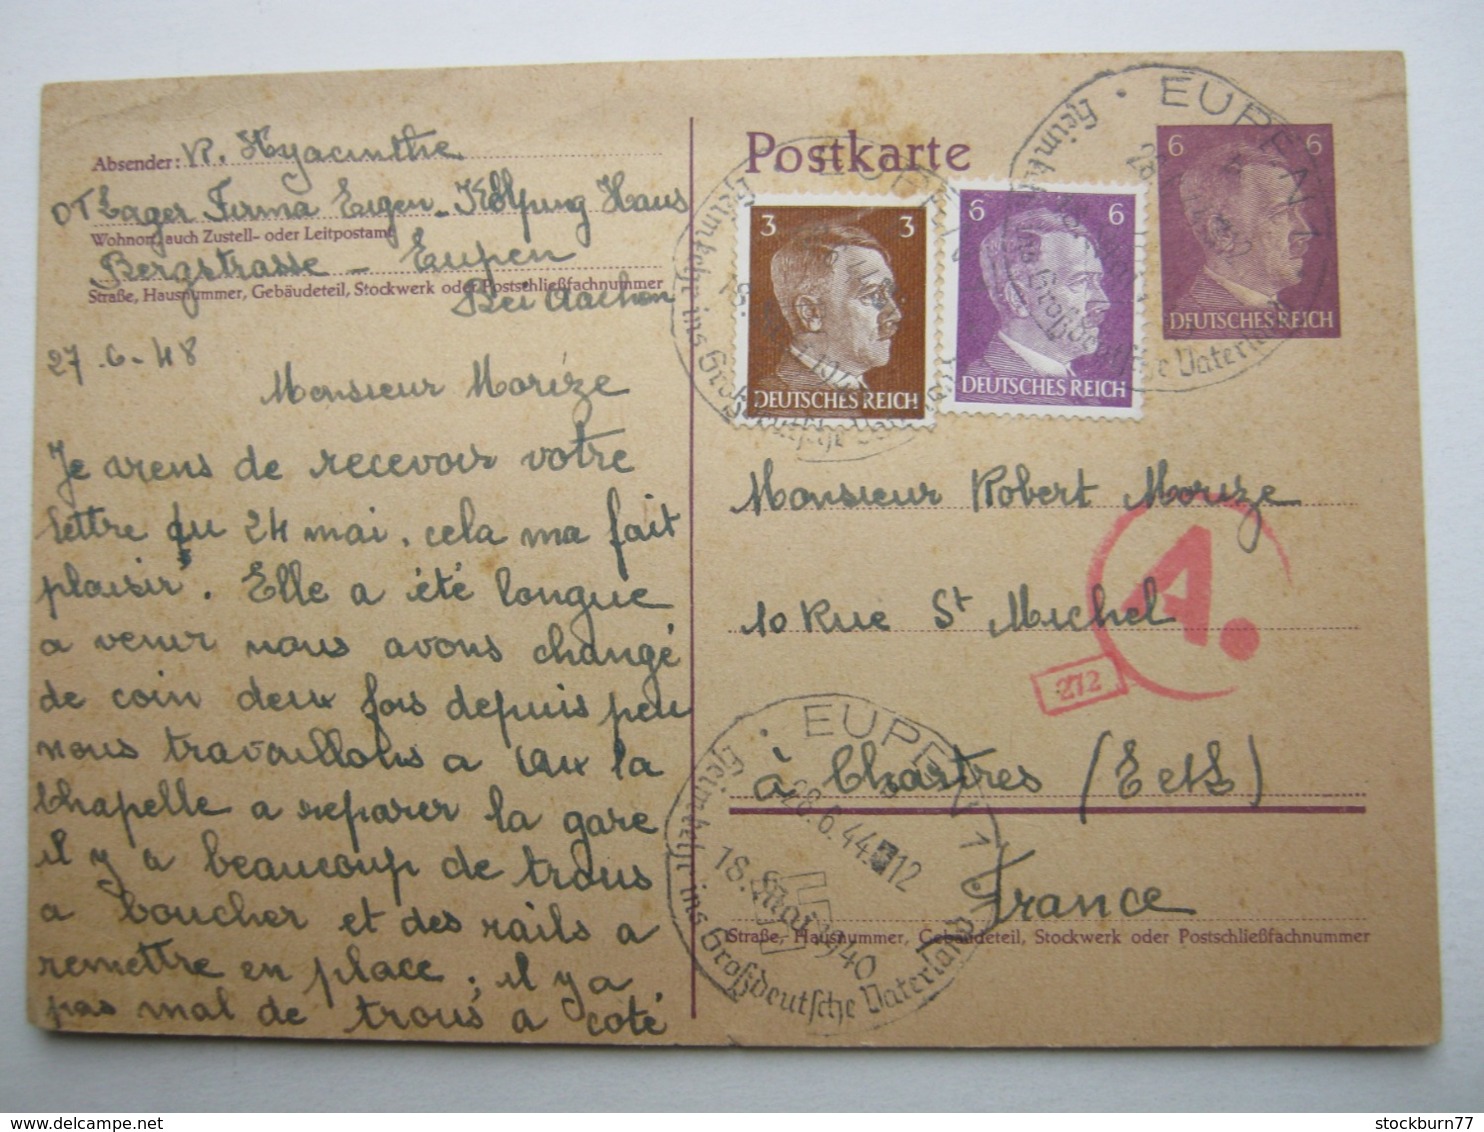 Absender: R. Hyacinthe
OT Lager Firma Eigen - Kolping Haus
Wohnort, auch Zustell- oder Leitpostamt
Bergstrasse - Eupen
Straße, Hausnummer, Gebäudeteil, Stockwerk oder Postschließfachnummer
Bei Aachen
27-6-48
Monsieur Morize
Je viens de recevoir votre
lettre du 24 mai, cela ma fait
plaisir. Elle a été longue
a venir nous avons changé
de coin deux fois depuis peu
nous travaillons a aix la
Chapelle a reparer la gare
il y a beaucoup de trous
a boucher et des rails a
remettre en place, il y a
pas mal de trous a coté
Postkarte
3 3
DEUTSCHES REICH
6 6
DEUTSCHES REICH
6 6
DEUTSCHES REICH
EUPEN 1
Heimkehr ins Großdeutsche Vaterland
Monsieur Robert Morize
10 Rue St Michel
A.
272
à Chartres (E et L)
France
Straße, Hausnummer, Gebäudeteil, Stockwerk oder Postschließfachnummer
EUPEN 1
28.6.44 12
18. Mai 1940
Heimkehr ins Großdeutsche Vaterland
stockburn77